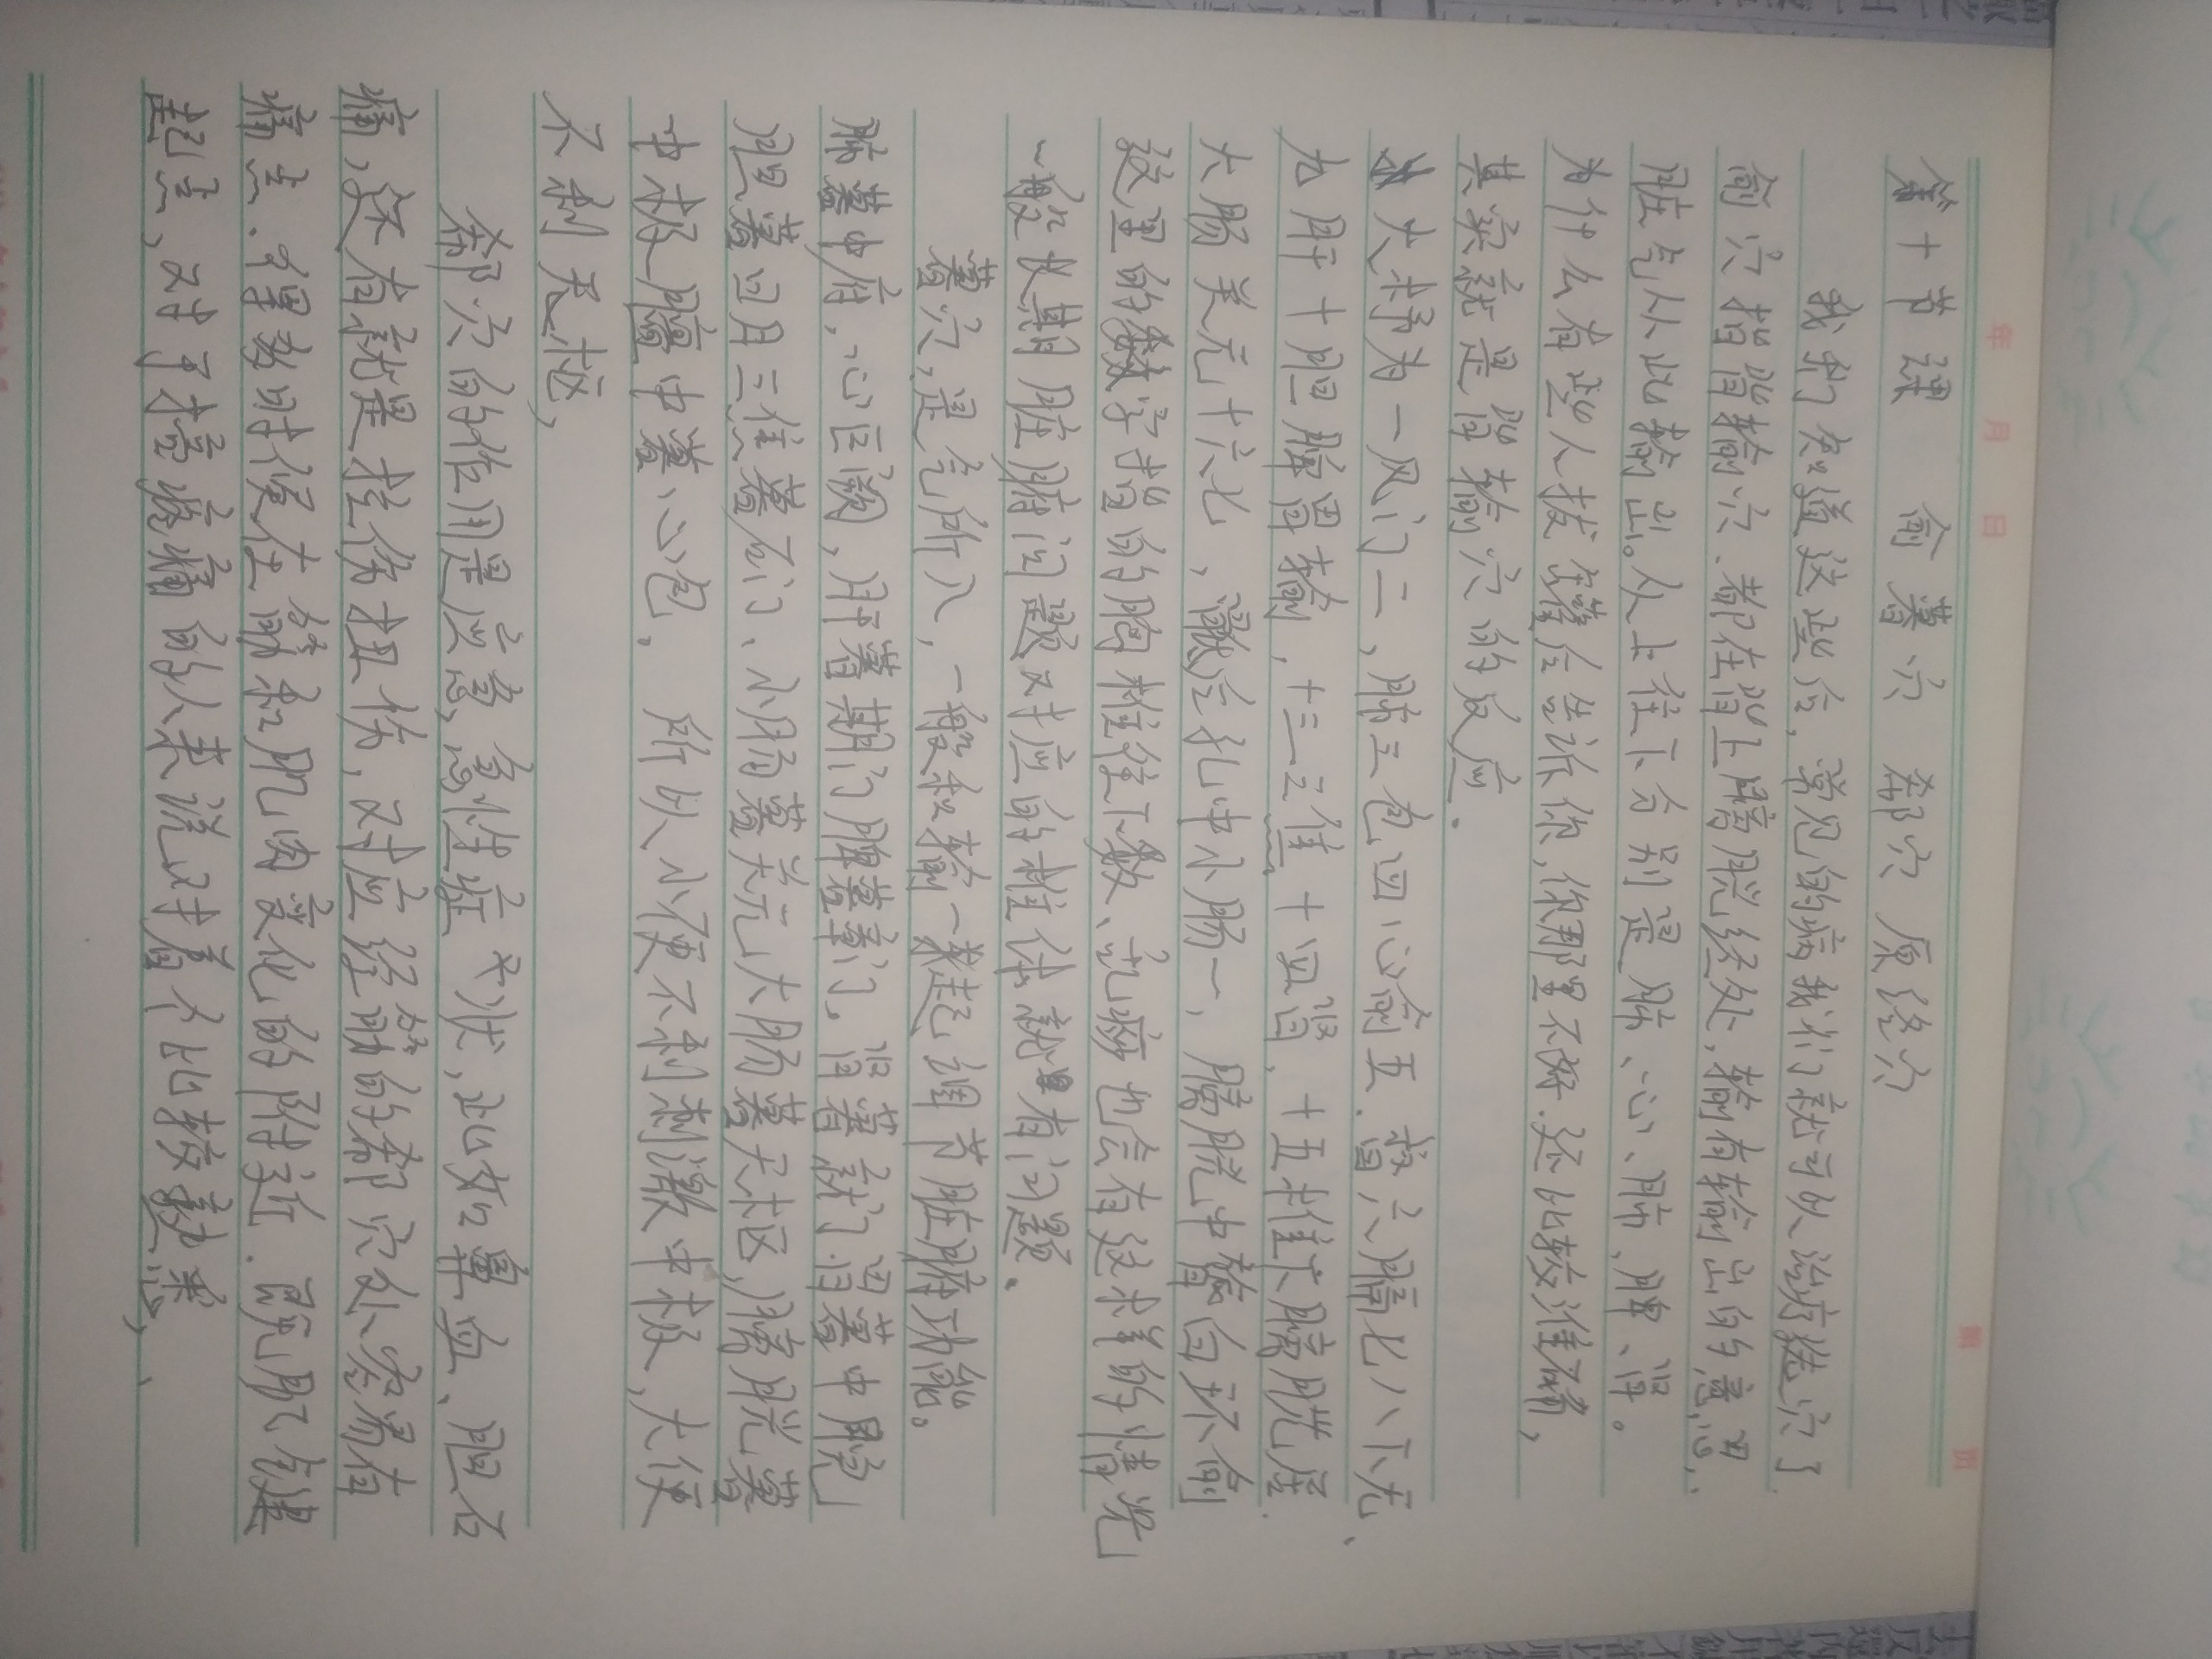 年 月 日 第 页
第十节课 俞募穴 郄穴 原络穴
我们知道这些后，常见的病我们就可以治疗选穴了
俞穴指背输穴．都在背上膀胱经处，输有输出的意思．
脏气从此输出。从上往下分别是肺、心、肝、脾、肾。
为什么有些人拔罐后告诉你，你那里不好．还比较准确，
其实就是背输穴的反应．
大杼为一风门二，肺三包四心俞五．督六膈七八下无、
九肝十胆脾胃输，十三三焦十四肾、十五气海
大肠关元十六七，小肠一，膀胱中膂白环俞
这里的数字指的胸椎往下数、扎疗也会有这本羊的情况
一般长期脏腑问题对应的椎体就有问题．
募穴，是气所入，一般和输一起调节脏腑功能。
肺募中府，心巨阙，肝募期门脾募章门．肾募京门．胃募中脘
胆募日月三焦募石门、小肠募关元大肠募天枢，膀胱募
中极膻中募心包．所以小便不利刺激中极，大便
不利天枢，
郄穴的作用是应急，急性症状，比如鼻血、胆石
痛，还有就是拉伤扭伤，对应经筋的郄穴处容易有
痛点．得多时候在筋和肌肉变化的附近．
起点，对于摇晃痛的人来说对着个比较熟悉，